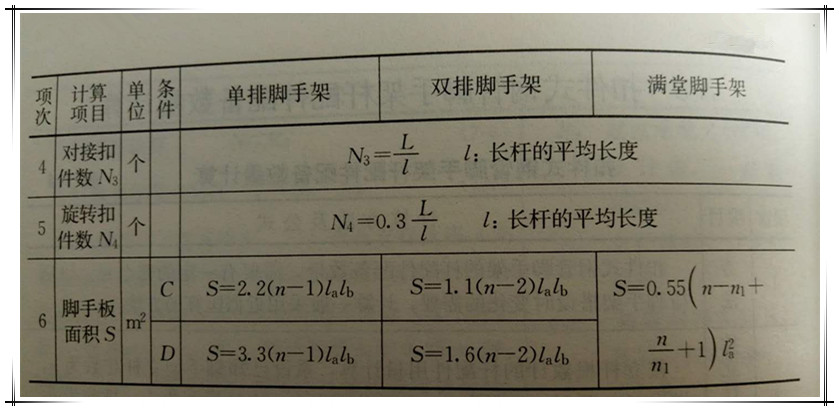 项次 计算项目 单位 条件 单排脚手架 双排脚手架 满堂脚手架
4 对接扣件数 N₃ 个 N₃=L/l l: 长杆的平均长度
5 旋转扣件数 N₄ 个 N₄=0.3 L/l l: 长杆的平均长度
6 脚手板面积 S m² C S=2.2(n−1)lₐl_b S=1.1(n−2)lₐl_b S=0.55(n−n₁+
D S=3.3(n−1)lₐl_b S=1.6(n−2)lₐl_b n/n₁+1)lₐ²